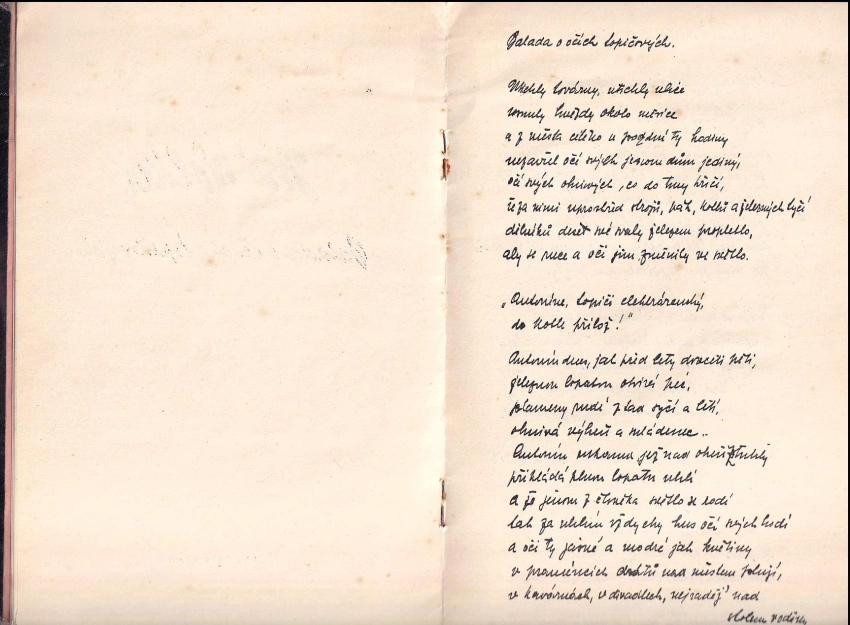 Balada o očích topičových.
Utichly továrny, utichly ulice
usnuly hvězdy okolo měsíce
a z města celého v pozdní ty hodiny
nezavřel očí svých jenom dům jediný,
očí svých ohnivých, co do tmy křičí,
že za nimi uprostřed strojů, pák, kotlů a železných tyčí
dělníků deset své svaly železem propletlo,
aby se ruce a oči jim změnily ve světlo.
„Antoníne, topiči elektrárenský,
do kotle přilož!"
Antonín dnes, jak před lety dvaceti pěti,
železnou lopatou otvírá pec,
plameny rudé z tad syčí a letí,
ohnivá výheň a mládenec..
Antonín rukama, jež nad ohněm ztuhly
přikládá plnou lopatu uhlí
A že jenom z člověka světlo se rodí
tak za uhlím vždycky kus očí svých hodí
a oči ty jasné a modré jak květiny
v praméncích drátů nad městem plují,
v kavárnách, v divadlech, nejraděj' nad
stolem rodiny